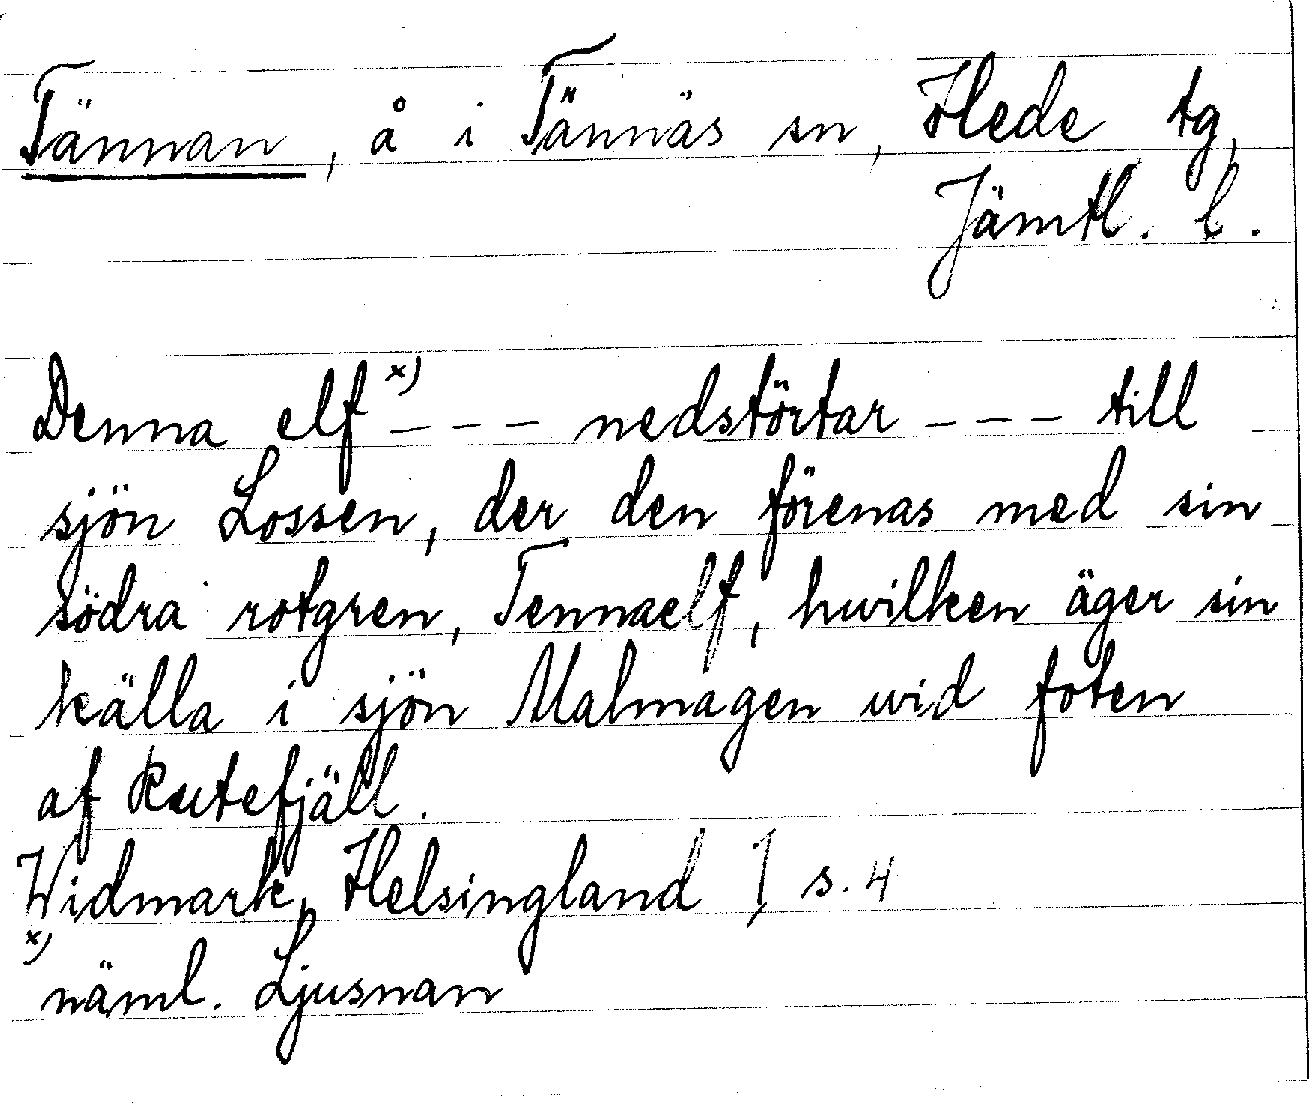 Tännan, å i Tännäs sn, Hede tg,
Jämtl. l.
Denna elf x) --- nedstörtar --- till
sjön Lossen, der den förenas med sin
södra rotgren, Tennaelf, hwilken äger sin
källa i sjön Malmagen wid foten
af Rutefjäll.
Widmark, Helsingland I s. 4
x)
näml. Ljusnan